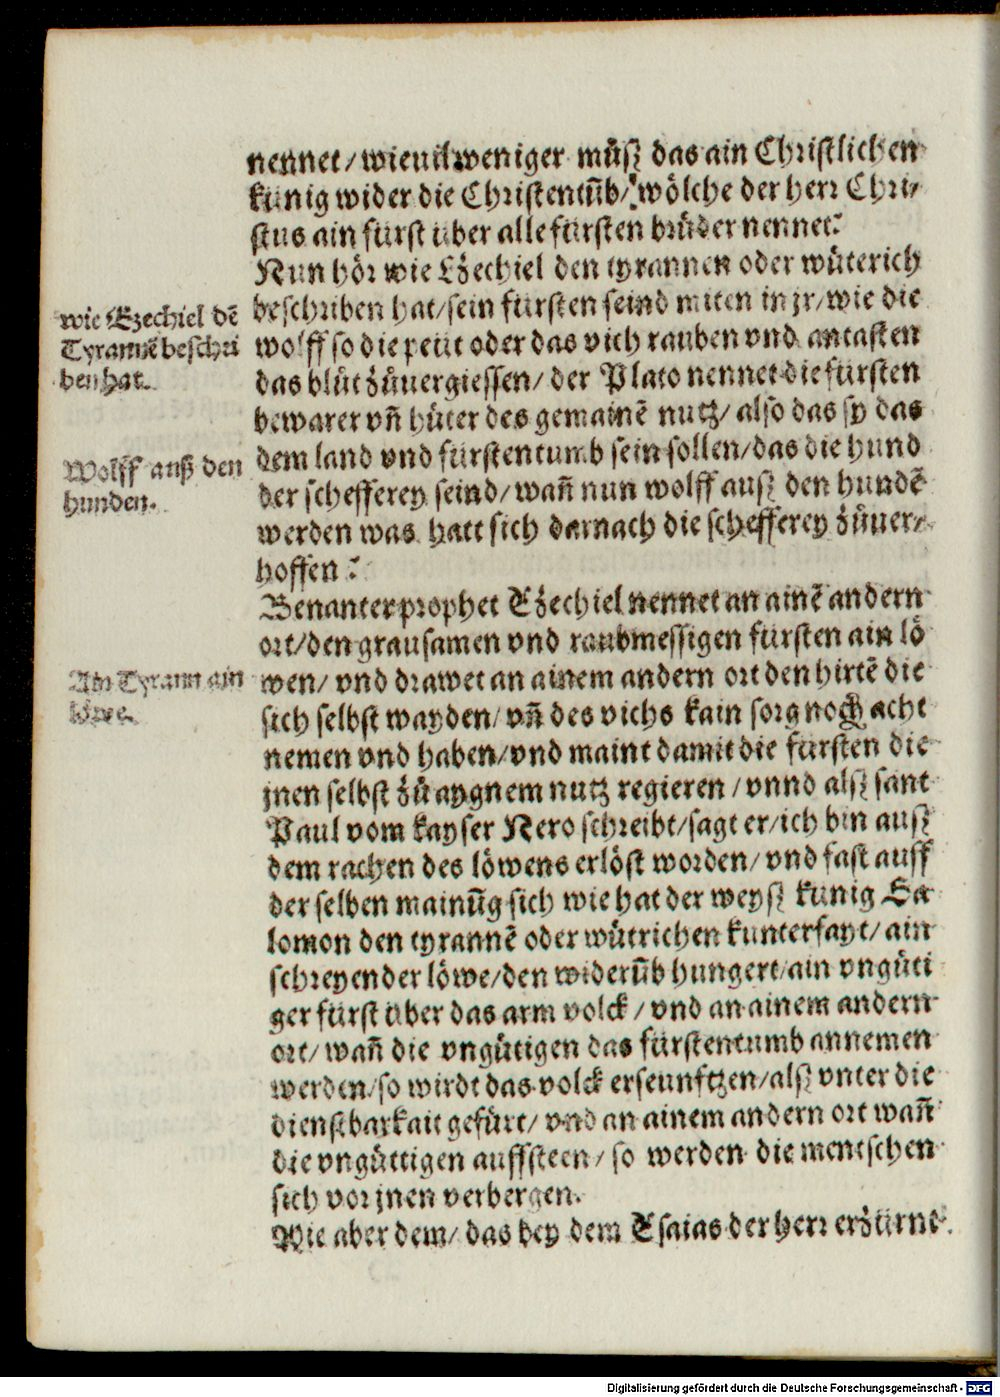 nennet/ wieuil weniger můsz das ain Christlichen
künig wider die Christentũb/ wölche der herr Chri⸗
stus ain fürst über alle fürsten brůder nennet?
Nun hör wie Ezechiel den tyrannen oder wüterich
beschriben hat/ sein fürsten seind miten in jr/ wie die
wolff so die petit oder das vich rauben vnd antasten
das blůt zůuergiessen/ der Plato nennet die fürsten
bewarer vñ hüter des gemainẽ nutz/ also das sy das
dem land vnd fürstentumb sein sollen/ das die hund
der schefferey seind/ wañ nun wolff ausz den hundẽ
werden was hatt sich darnach die schefferey zůuer⸗
hoffen?
Benanter prophet Ezechiel nennet an ainẽ andern
ort/ den grausamen vnd raubmessigen fürsten ain lö
wen/ vnd drawet an ainem andern ort den hirtẽ die
sich selbst wayden/ vñ des vichs kain sorg noch acht
nemen vnd haben/ vnd maint damit die fürsten die
jnen selbst zů aygnem nutz regieren/ vnnd alsz sant
Paul vom kayser Nero schreibt/ sagt er/ ich bin ausz
dem rachen des löwens erlöst worden/ vnd fast auff
der selben mainũg sich wie hat der weysz künig Sa
lomon den tyrannẽ oder wütrichen kunterfayt/ ain
schreyender löwe/ den widerũb hungert/ ain vngüti
ger fürst über das arm volck/ vnd an ainem andern
ort/ wañ die vngütigen das fürstentumb annemen
werden/ so wirdt das volck erseunfftzen/ alsz vnter die
dienstbarkait gefürt/ vnd an ainem andern ort wañ
die vngüttigen auffsteen/ so werden die mentschen
sich vor jnen verbergen.
Wie aber dem/ das bey dem Esaias der herr erzürnt
wie Ezechiel dẽ
Tyrannẽ beschri
ben hat.
Wolff ausz den
hunden.
Ain Tyrann ain
löwe.
Digitalisierung gefördert durch die Deutsche Forschungsgemeinschaft - DFG